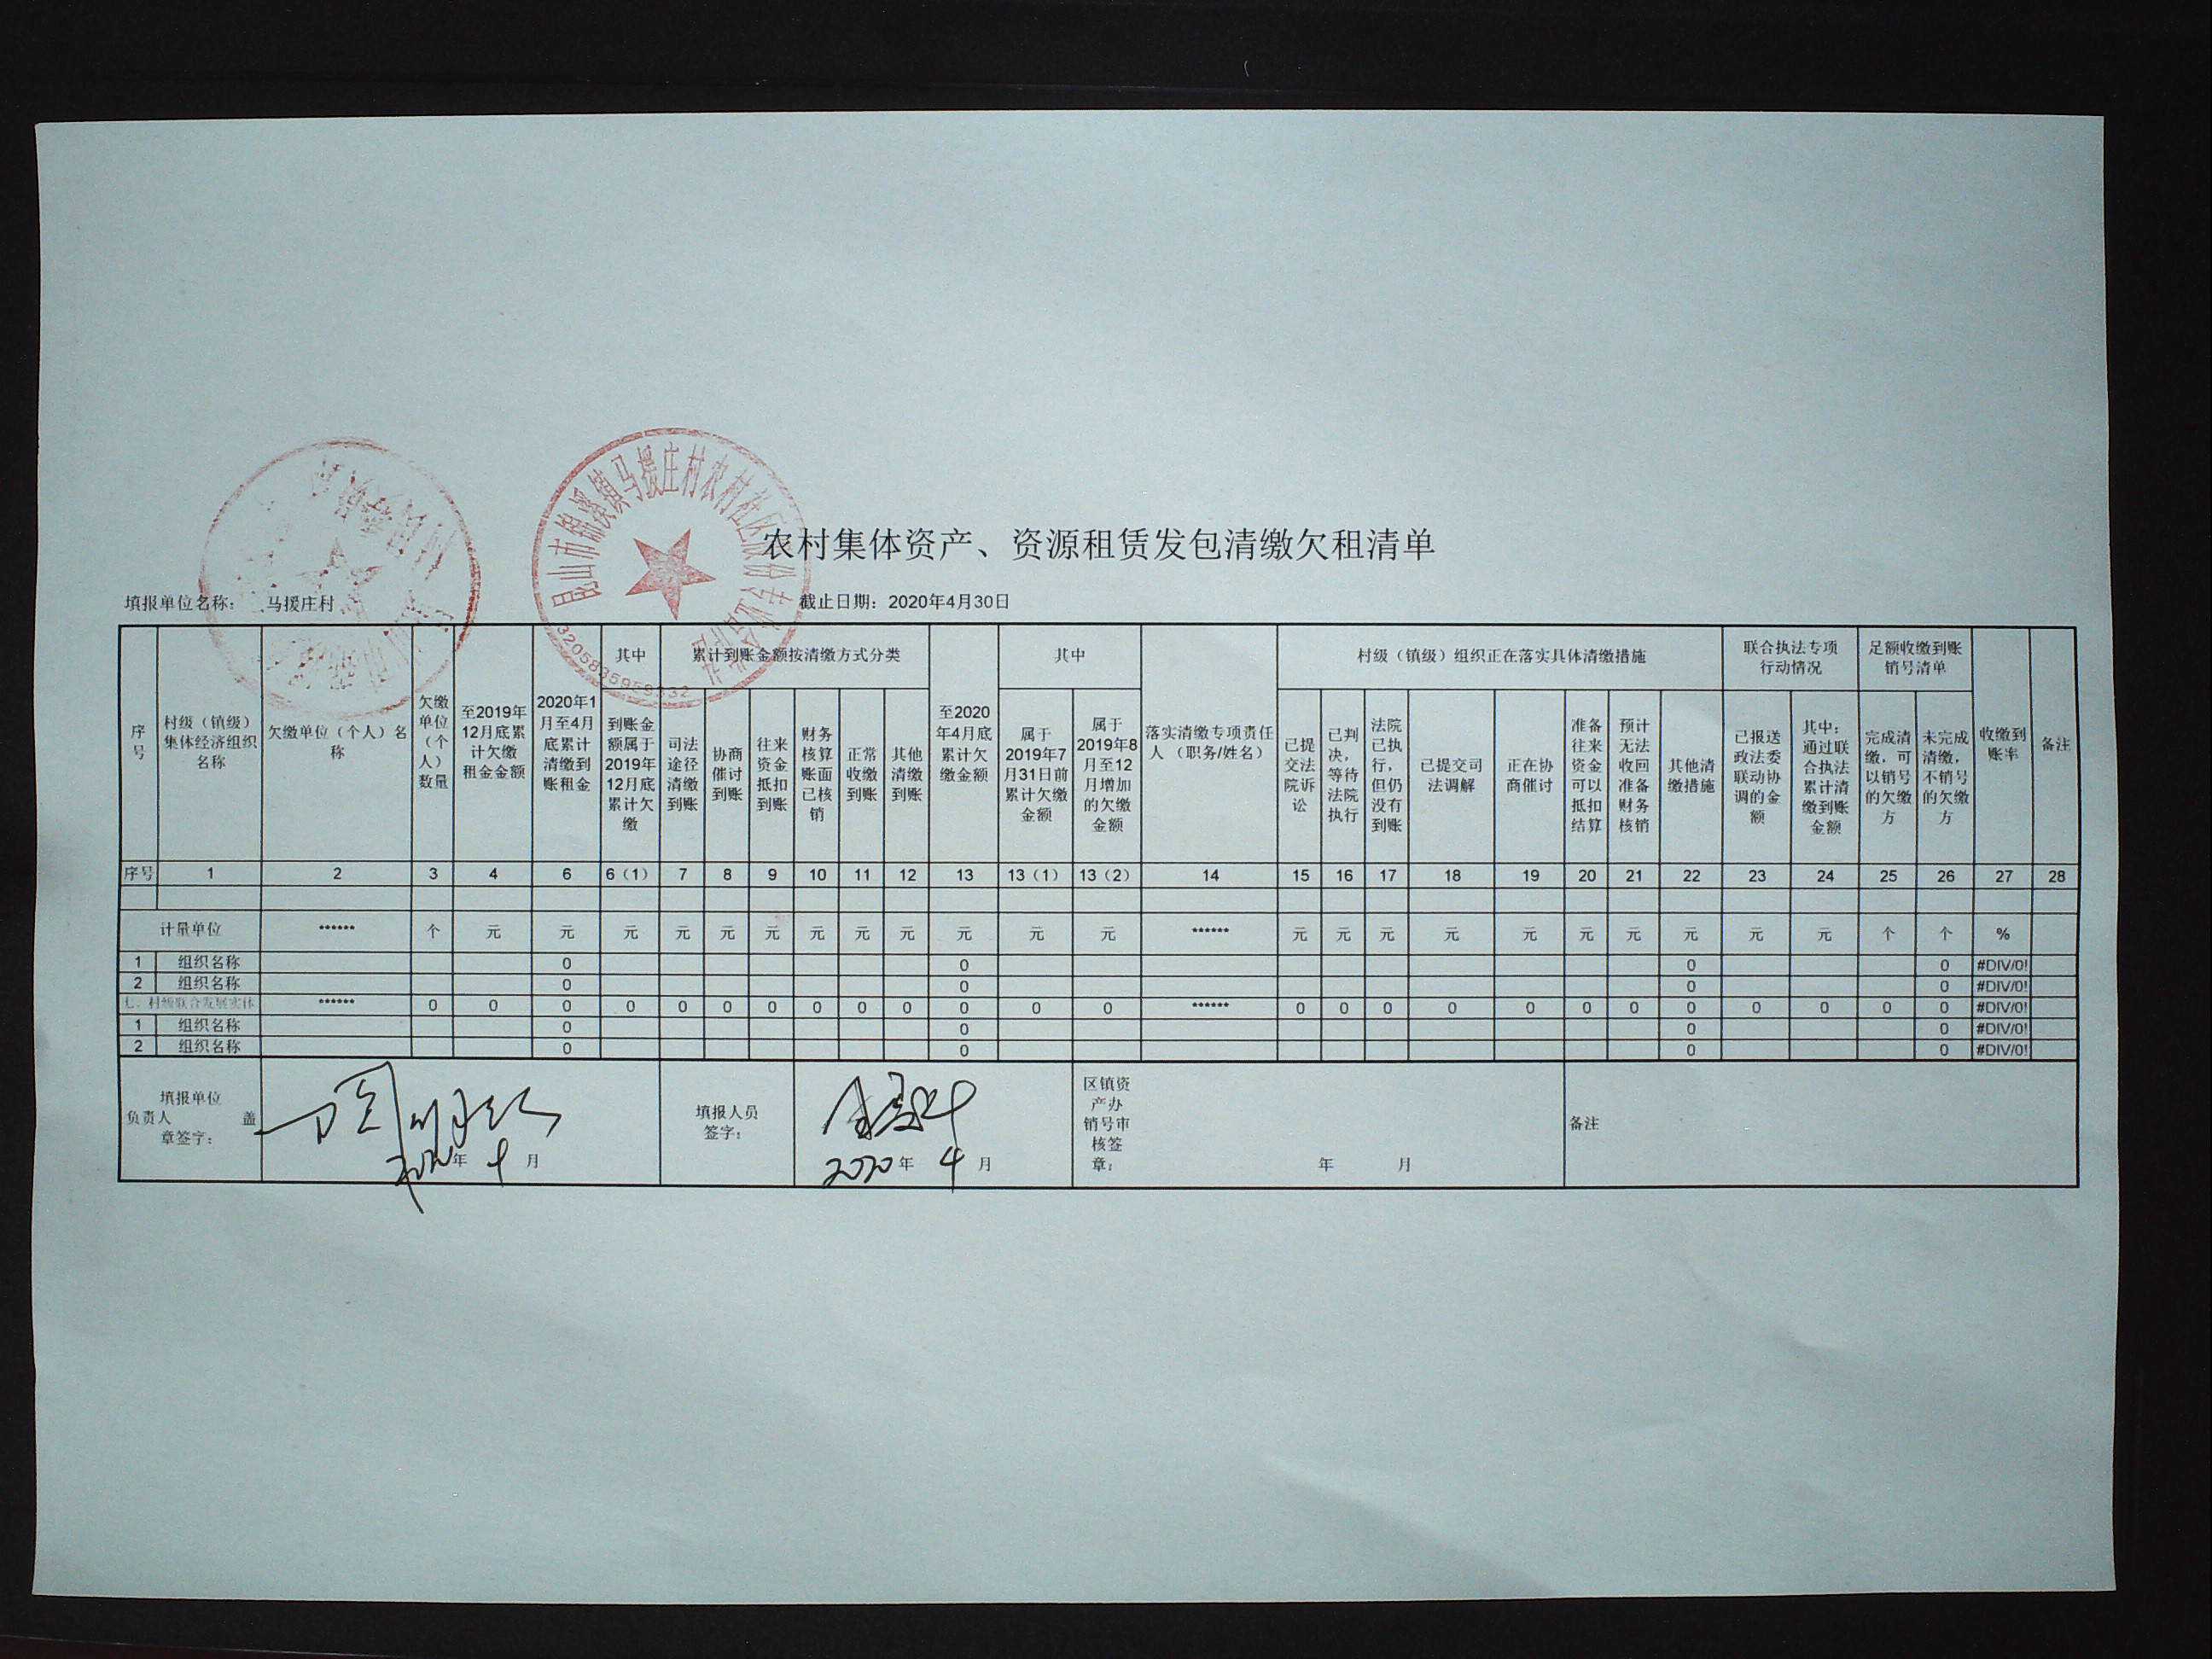 农村集体资产、资源租赁发包清缴欠租清单
填报单位名称： 马援庄村 截止日期：2020年4月30日
昆山市锦溪镇马援庄村农村社区股份专业合作社
序号
村级（镇级）集体经济组织名称
欠缴单位（个人）名称
欠缴单位（个人）数量
至2019年12月底累计欠缴租金金额
2020年1月至4月底累计清缴到账租金
其中
到账金额属于2019年12月底累计欠缴
累计到账金额按清缴方式分类
司法途径清缴到账
协商催讨到账
往来资金抵扣到账
财务核算账面已核销
正常收缴到账
其他清缴到账
至2020年4月底累计欠缴金额
其中
属于2019年7月31日前累计欠缴金额
属于2019年8月至12月增加的欠缴金额
落实清缴专项责任人（职务/姓名）
村级（镇级）组织正在落实具体清缴措施
已提交法院诉讼
已判决，等待法院执行
法院已执行，但仍没有到账
已提交司法调解
正在协商催讨
准备往来资金可以抵扣结算
预计无法收回准备财务核销
其他清缴措施
联合执法专项行动情况
已报送政法委联动协调的金额
其中：通过联合执法累计清缴到账金额
足额收缴到账销号清单
完成清缴，可以销号的欠缴方
未完成清缴，不销号的欠缴方
收缴到账率
备注
序号 1 2 3 4 6 6（1） 7 8 9 10 11 12 13 13（1） 13（2） 14 15 16 17 18 19 20 21 22 23 24 25 26 27 28
计量单位 ****** 个 元 元 元 元 元 元 元 元 元 元 元 元 ****** 元 元 元 元 元 元 元 元 元 元 个 个 %
1 组织名称 0 0 0 0 #DIV/0!
2 组织名称 0 0 0 0 #DIV/0!
七、村级联合发展实体 ****** 0 0 0 0 0 0 0 0 0 0 0 0 0 ****** 0 0 0 0 0 0 0 0 0 0 0 0 #DIV/0!
1 组织名称 0 0 0 0 #DIV/0!
2 组织名称 0 0 0 0 #DIV/0!
填报单位负责人 盖章签字：
2020年 4月
填报人员签字：
2020年 4月
区镇资产办销号审核签章：
年 月
备注